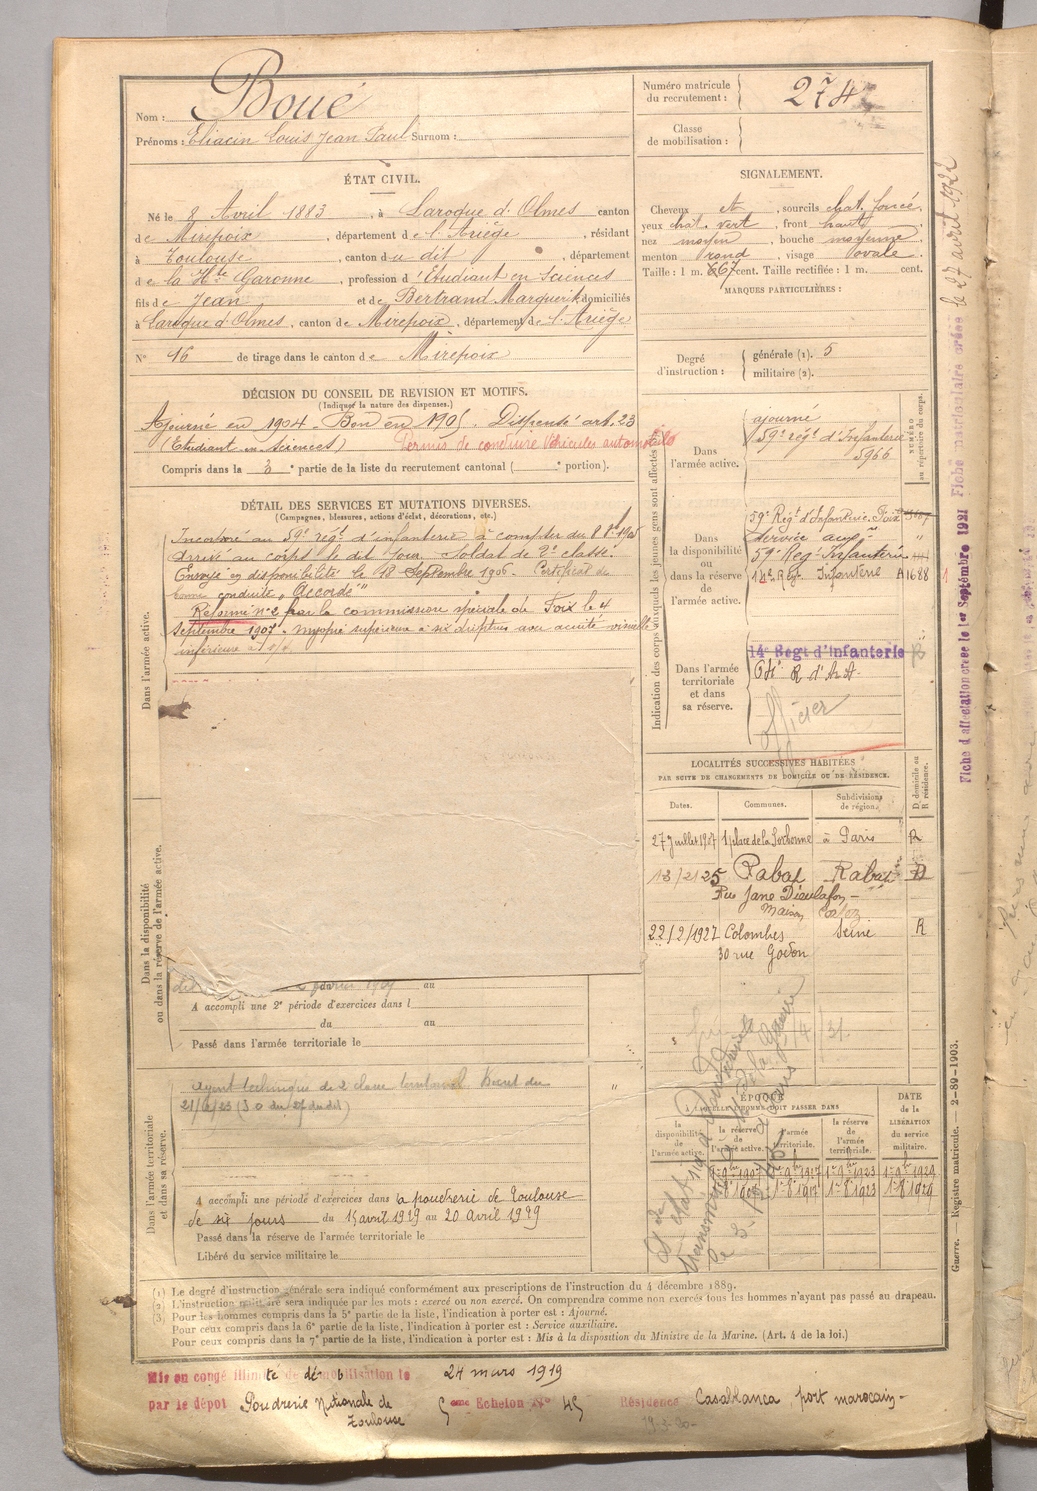 Nom : Boué
Prénoms : Eliacin Louis Jean Paul Surnom :
Numéro matricule du recrutement : 274
Classe de mobilisation :
ÉTAT CIVIL.
Né le 8 Avril 1883, à Laroque d'Olmes canton
de Mirepoix, département de l'Ariège, résidant
à Toulouse, canton du dit, département
de la Hte Garonne, profession d'Etudiant en Sciences
fils de Jean et de Bertrand Marguerite domiciliés
à Laroque d'Olmes, canton de Mirepoix, département de l'Ariège
N° 16 de tirage dans le canton de Mirepoix
SIGNALEMENT.
Cheveux et, sourcils chat. foncé.
yeux chat. vert, front haut
nez moyen, bouche moyenne.
menton rond, visage ovale.
Taille : 1 m. 667 cent. Taille rectifiée : 1 m. cent.
MARQUES PARTICULIÈRES :
Degré d'instruction :
générale (1). 5
militaire (2).
DÉCISION DU CONSEIL DE REVISION ET MOTIFS.
(Indiquer la nature des dispenses.)
Ajourné en 1904. Bon en 1905. Dispensé art. 23
(Etudiant en Sciences) Permis de conduire Véhicules automobiles
Compris dans la 3e partie de la liste du recrutement cantonal ( e portion).
DÉTAIL DES SERVICES ET MUTATIONS DIVERSES.
(Campagnes, blessures, actions d'éclat, décorations, etc.)
Dans l'armée active.
Incorporé au 59e rég. d'infanterie à compter du 8 8bre 1905
Arrivé au corps le dit jour. Soldat de 2e classe.
Envoyé en disponibilité le 18 Septembre 1906. Certificat de
bonne conduite „Accordé"
Réformé n°2 par la commission spéciale de Foix le 4
Septembre 1907. myopie supérieure à six dioptries avec acuité visuelle
inférieure à
Indication des corps auxquels les jeunes gens sont affectés
NUMÉRO au répertoire du corps.
Dans l'armée active.
ajourné
59e rég. d'Infanterie
5966
Dans la disponibilité ou dans la réserve de l'armée active.
59e Régt d'Infanterie. Foix
Service auxre "
59e Rég. Infanterie
14e Rég. Infanterie A1688
Dans l'armée territoriale et dans sa réserve.
14e Régt d'Infanterie
64e R d'
Officier
LOCALITÉS SUCCESSIVES HABITÉES
PAR SUITE DE CHANGEMENTS DE DOMICILE OU DE RÉSIDENCE.
Dates. Communes. Subdivisions de région. D domicile ou R résidence.
27 juillet 1907 1 place de la Sorbonne à Paris R
13/2/25 Rabat Rabat D
Rue Jane Dieulafoy -
Maison
22/2/1927 Colombes Seine R
30 rue
Dans la disponibilité ou dans la réserve de l'armée active.
février 1909 au
A accompli une 2e période d'exercices dans l
du au
Passé dans l'armée territoriale le
Dans l'armée territoriale et dans sa réserve.
agent technique de 2 classe territorial. Décret du
21/6/23
A accompli une période d'exercices dans la poudrerie de Toulouse
de six jours du 15 avril 1929 au 20 avril 1929
Passé dans la réserve de l'armée territoriale le
Libéré du service militaire le
ÉPOQUE
A LAQUELLE L'HOMME DOIT PASSER DANS
la disponibilité de l'armée active. la réserve de l'armée active. l'armée territoriale. la réserve de l'armée territoriale. DATE de la LIBÉRATION du service militaire.
1er 9bre 1907 1er 9bre 1917 1er 9bre 1923 1er 9bre 1929
1er 8bre 1923 1er 8bre 1929
Fiche d'affectation créée le 1er Septembre 1921 Fiche matriculaire créée le 27 avril 1922
Guerre. Registre matricule. — 2-89-1903.
(1) Le degré d'instruction générale sera indiqué conformément aux prescriptions de l'instruction du 4 décembre 1889.
(2) L'instruction militaire sera indiquée par les mots : exercé ou non exercé. On comprendra comme non exercés tous les hommes n'ayant pas passé au drapeau.
(3) Pour les hommes compris dans la 5e partie de la liste, l'indication à porter est : Ajourné.
Pour ceux compris dans la 6e partie de la liste, l'indication à porter est : Service auxiliaire.
Pour ceux compris dans la 7e partie de la liste, l'indication à porter est : Mis à la disposition du Ministre de la Marine. (Art. 4 de la loi.)
Mis en congé illimité de démobilisation le 24 mars 1919
par le dépôt Poudrerie Nationale de Toulouse 5eme Echelon N° 45 Résidence Casablanca, port marocain -